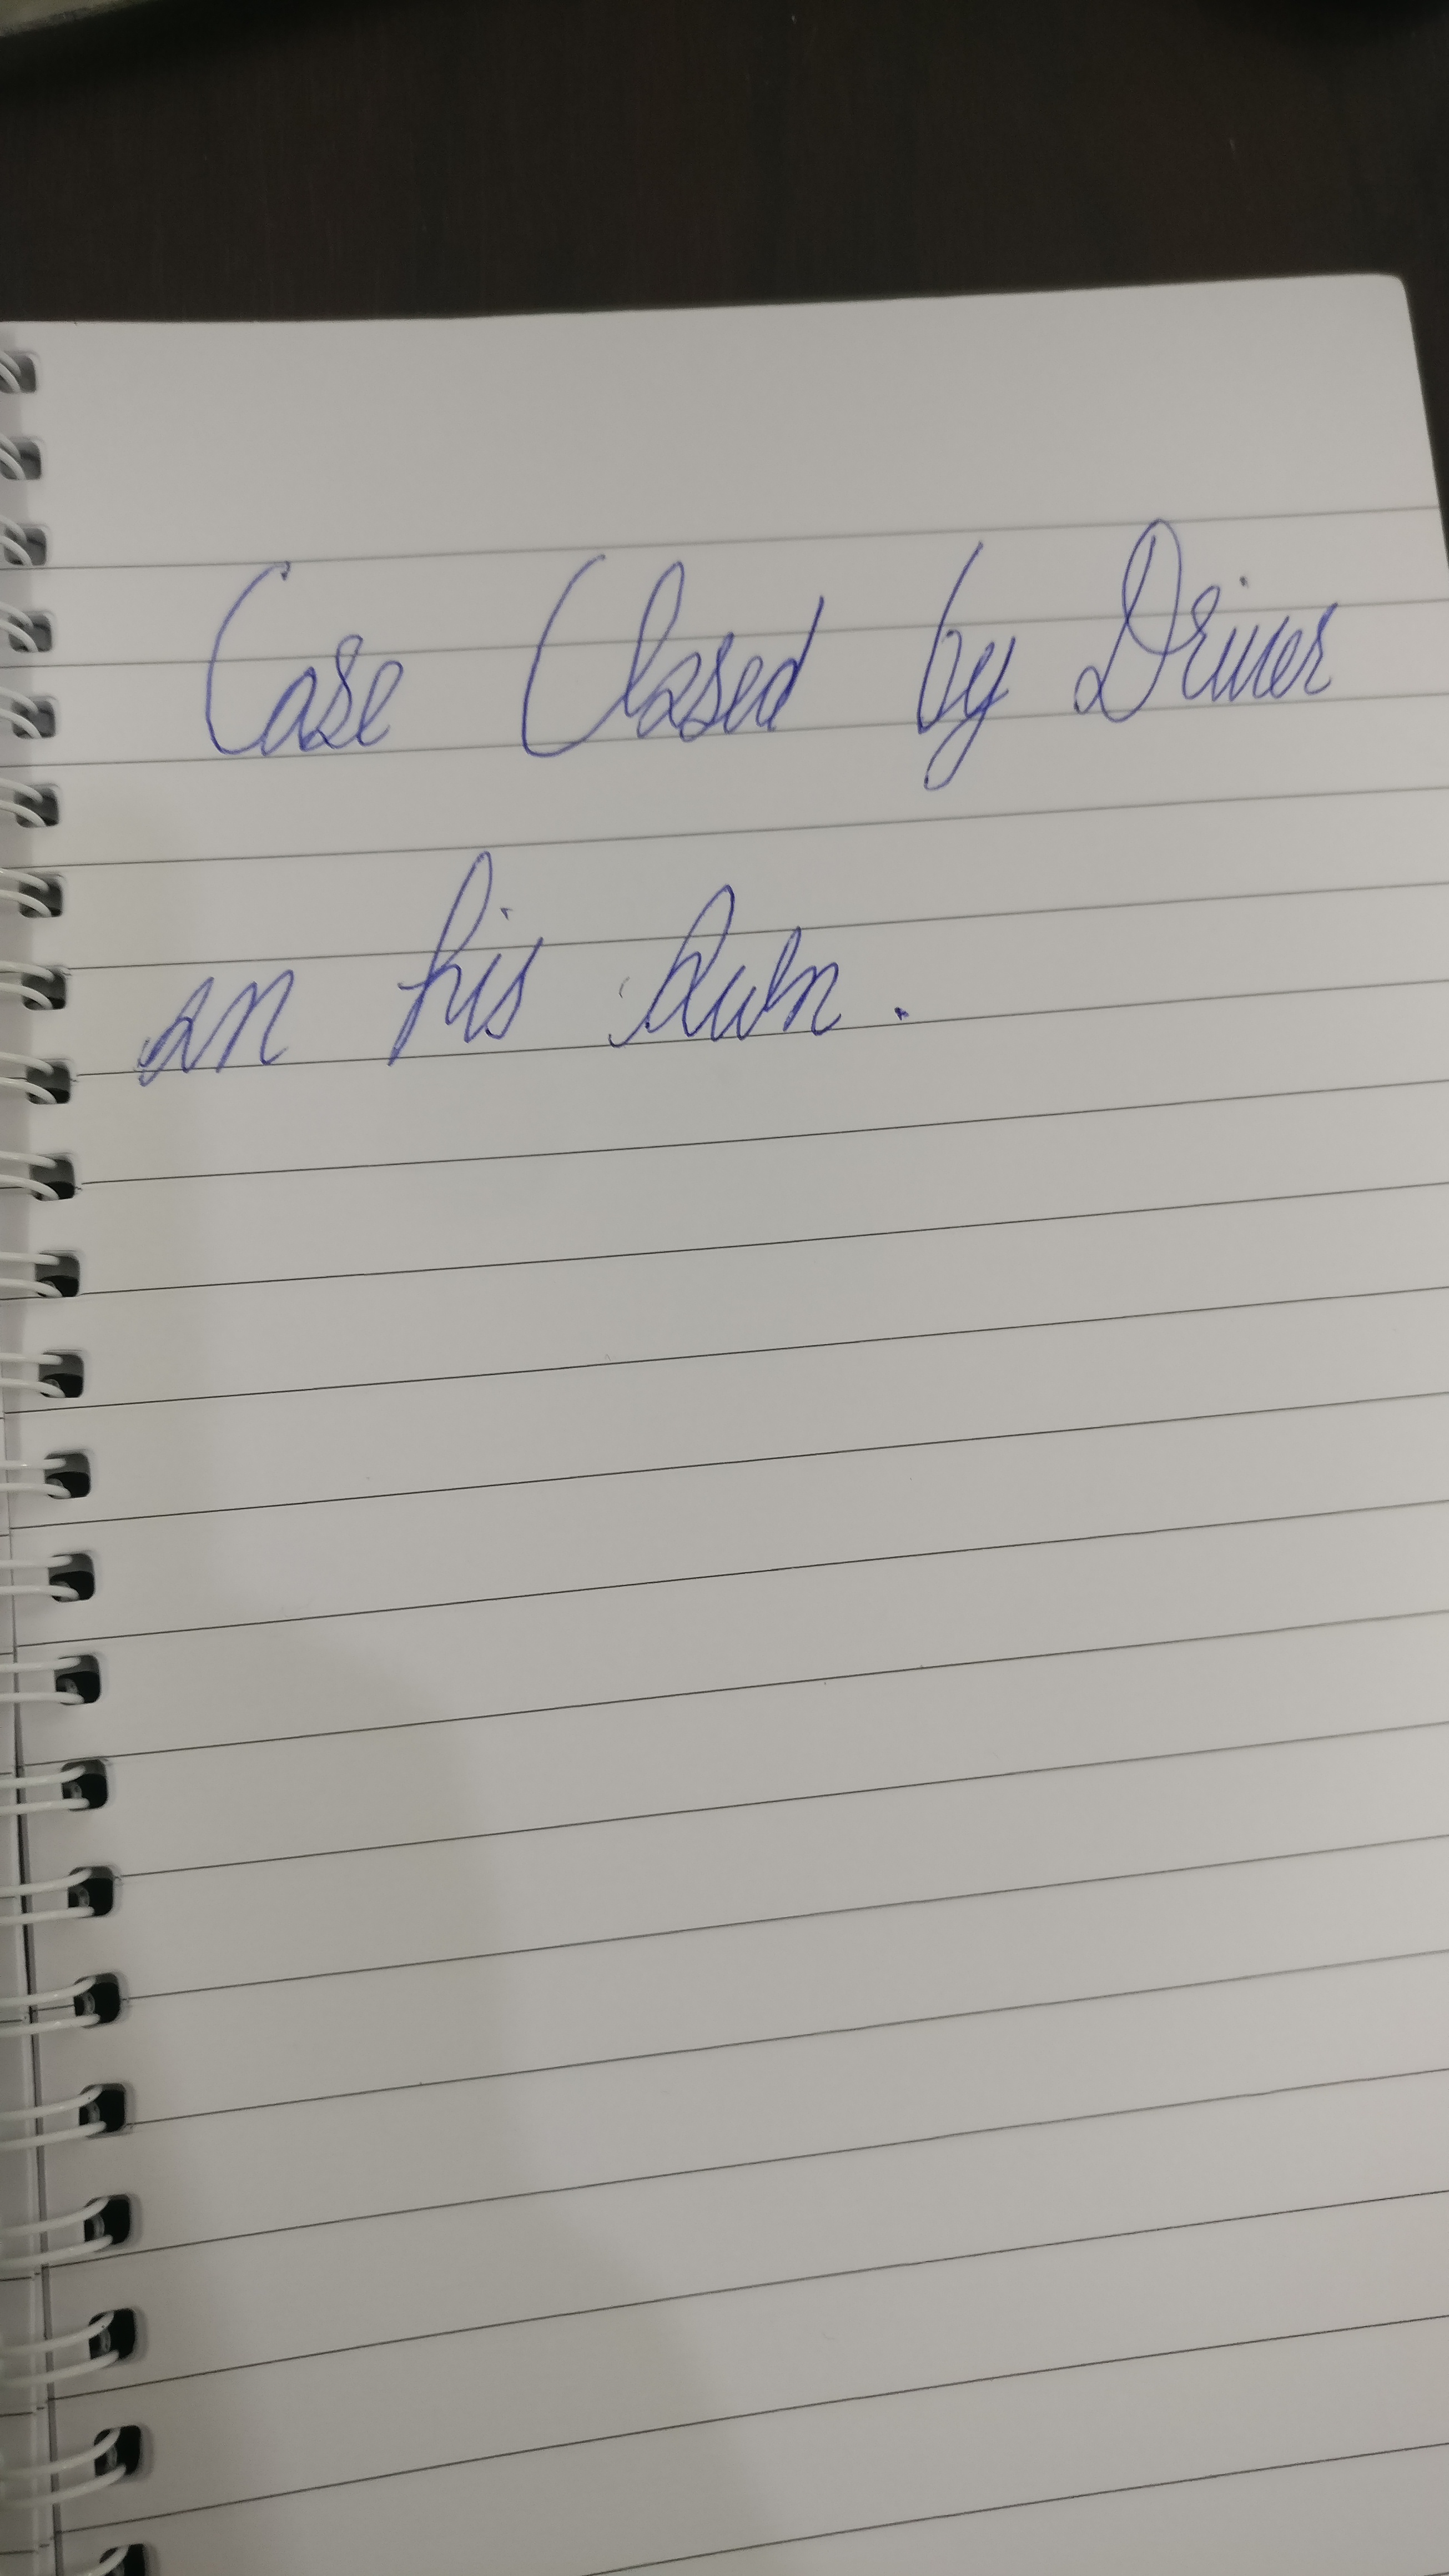 Case Closed by Driver
on his own.